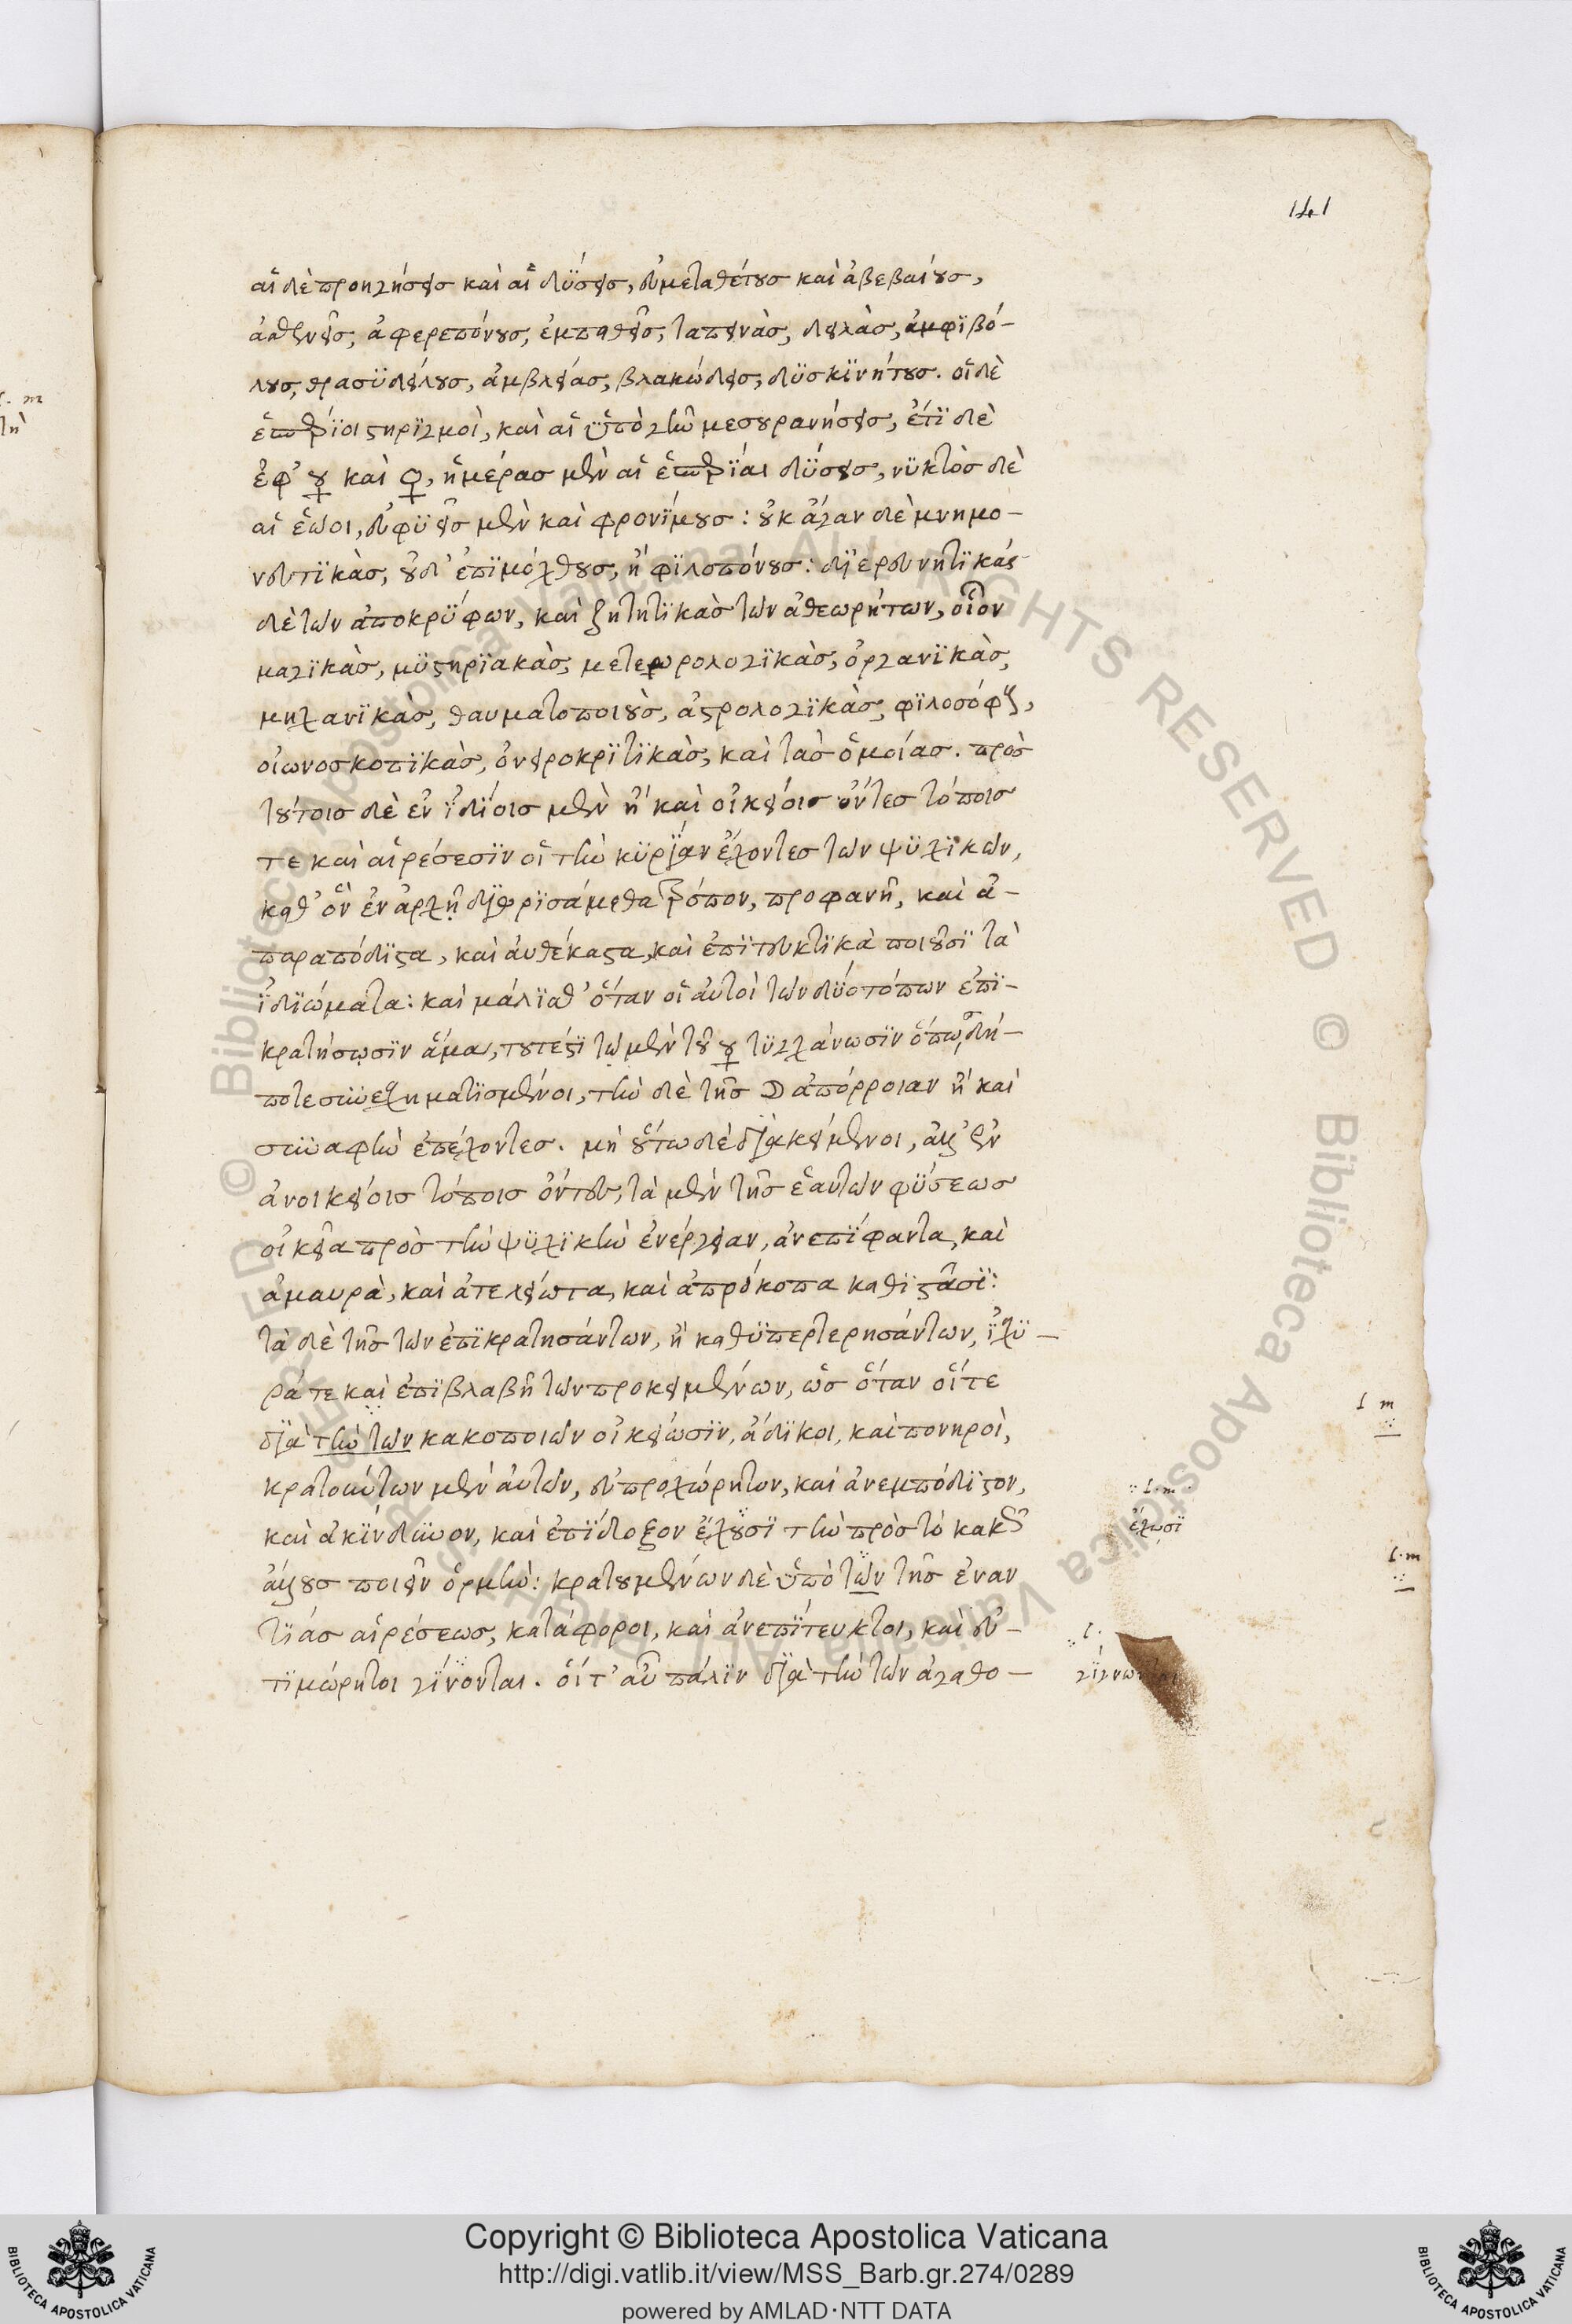 141
αἱ δὲ προηγήσεις καὶ αἱ δύσεις, εὐμεταθέτους καὶ ἀβεβαίους,
ἀσθενεῖς, ἀφερεπόνους, ἐμπαθεῖς, ταπεινὰς, δειλὰς, ἀμφιβό-
λους, θρασυδείλους, ἀμβλείας, βλακώδεις, δυσκινήτους. οἱ δὲ
ἑσπέριοι στηριγμοὶ, καὶ αἱ ὑπὸ γῆν μεσουρανήσεις, ἔτι δὲ
ἐφ' ☿ καὶ ♀, ἡμέρας μὲν αἱ ἑσπέριαι δύσεις, νυκτὸς δὲ
αἱ ἑῶοι, εὐφυεῖς μὲν καὶ φρονίμους: οὐκ ἄγαν δὲ μνημο-
νευτικὰς, οὐδ' ἐπιμόχθους, ἢ φιλοπόνους: διερευνητικὰς
δὲ τῶν ἀποκρύφων, καὶ ζητητικὰς τῶν ἀθεωρήτων, οἷον
μαγικὰς, μυστηριακὰς, μετεωρολογικὰς, ὀργανικὰς,
μηχανικὰς, θαυματοποιοὺς, ἀστρολογικὰς, φιλοσόφους,
οἰωνοσκοπικὰς, ὀνειροκριτικὰς, καὶ τὰς ὁμοίας. πρὸς
τούτοις δὲ ἐν ἰδίοις μὲν ἢ καὶ οἰκείοις ὄντες τόποις
τε καὶ αἱρέσεσιν οἱ τὴν κυρίαν ἔχοντες τῶν ψυχικῶν,
καθ' ὃν ἐν ἀρχῇ διωρισάμεθα τρόπον, προφανῆ, καὶ ἀ-
παραπόδιστα, καὶ αὐθέκαστα, καὶ ἐπιτευκτικὰ ποιοῦσι τὰ
ἰδιώματα: καὶ μάλισθ' ὅταν οἱ αὐτοὶ τῶν δύο τόπων ἐπι-
κρατήσωσιν ἅμα, τουτέστι τῷ μὲν τοῦ ☿ τυγχάνωσιν ὁπωσδή-
ποτε συνεσχηματισμένοι, τὴν δὲ τῆς ☽ ἀπόρροιαν ἢ καὶ
συναφὴν ἐπέχοντες. μὴ οὕτω δὲ διακείμενοι, ἀλλ' ἐν
ἀνοικείοις τόποις ὄντες, τὰ μὲν τῆς ἑαυτῶν φύσεως
οἰκεῖα πρὸς τὴν ψυχικὴν ἐνέργειαν, ἀνεπίφαντα, καὶ
ἀμαυρὰ, καὶ ἀτελείωτα, καὶ ἀπρόκοπα καθιστᾶσι:
τὰ δὲ τῆς τῶν ἐπικρατησάντων, ἢ καθυπερτερησάντων, ἰσχυ-
ρά τε καὶ ἐπιβλαβῆ τῶν προκειμένων, ὡς ὅταν οἵτε
διὰ τὴν τῶν κακοποιῶν οἰκείωσιν, ἄδικοι, καὶ πονηροὶ,
κρατούντων μὲν αὐτῶν, εὐπροχώρητον, καὶ ἀνεμπόδιστον,
καὶ ἀκίνδυνον, καὶ ἐπίδοξον ἔχουσι τὴν πρὸς τὸ κακῶς
ἄλλους ποιεῖν ὁρμὴν: κρατουμένων δὲ ὑπὸ τῶν τῆς ἐναν
τίας αἱρέσεως, κατάφοροι, καὶ ἀνεπίτευκτοι, καὶ εὐ-
τιμώρητοι γίνονται. οἵτ' αὖ πάλιν διὰ τὴν τῶν ἀγαθο-
ἔχωσι
Copyright © Biblioteca Apostolica Vaticana
http://digi.vatlib.it/view/MSS_Barb.gr.274/0289
powered by AMLAD·NTT DATA